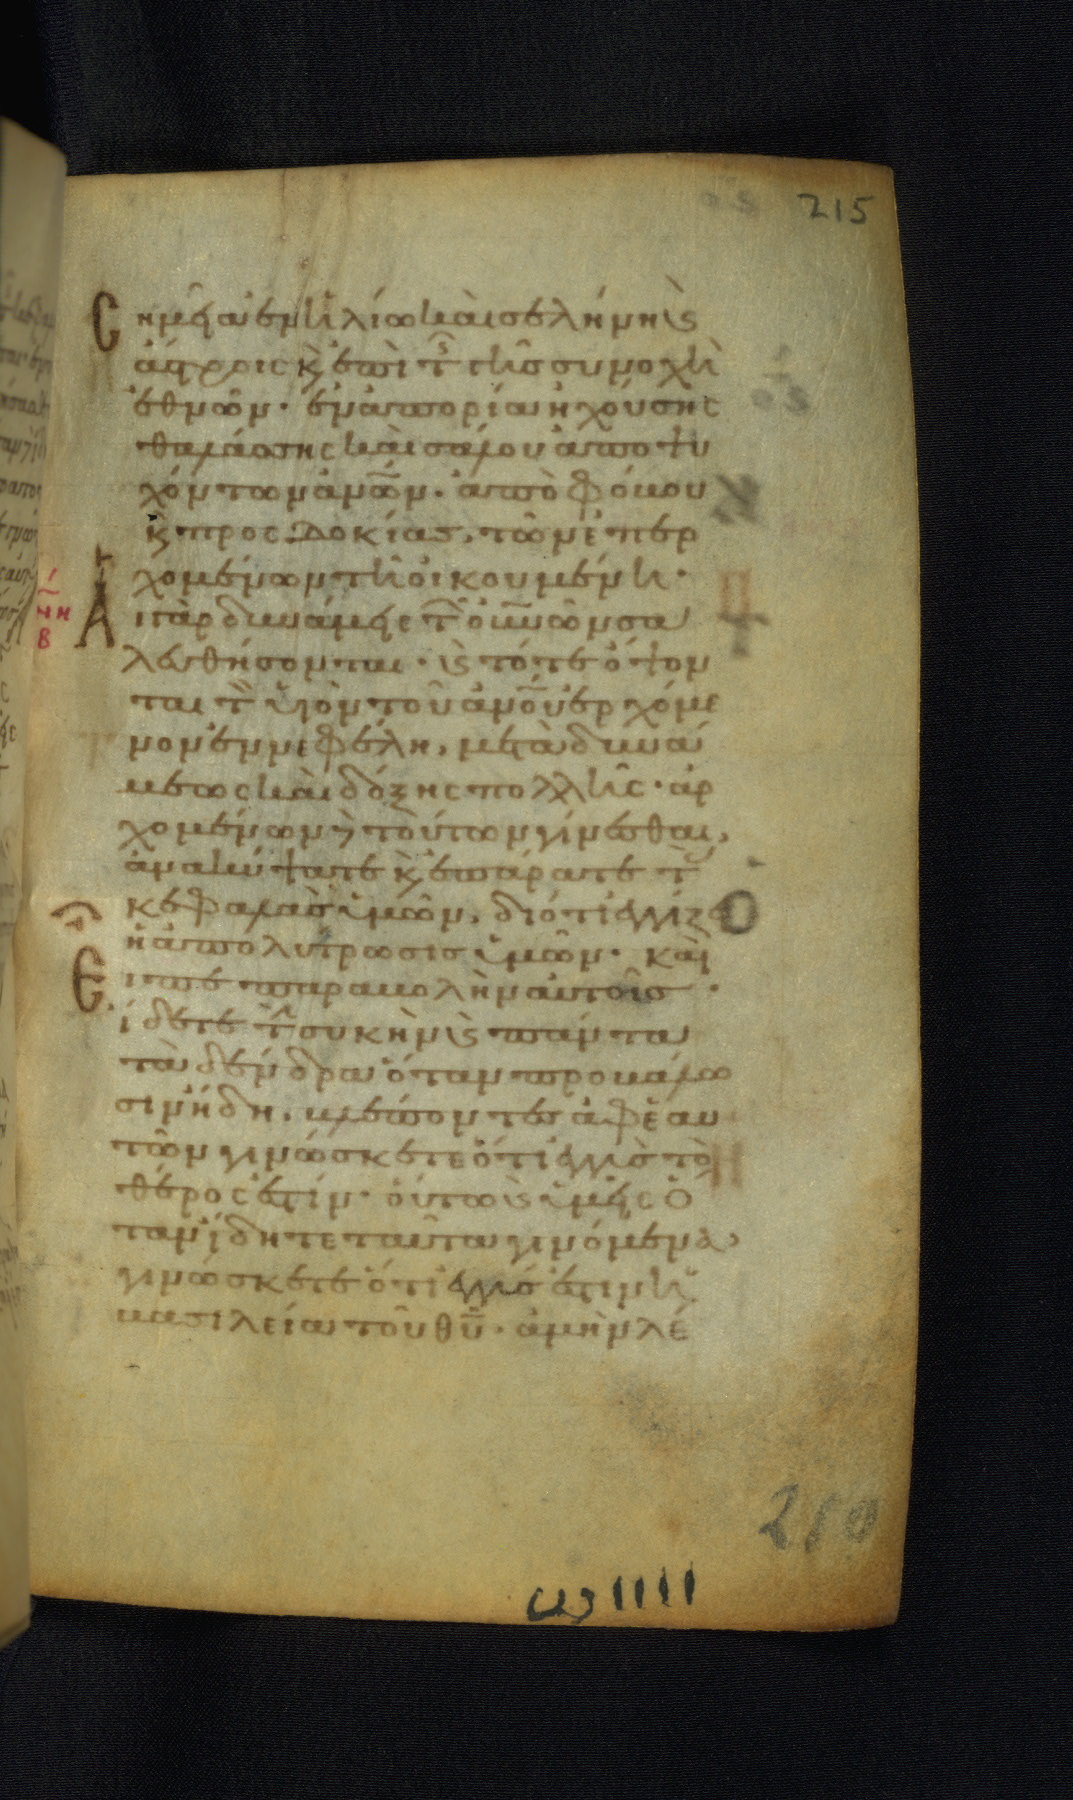 215
Σημεῖα ἐν ἡλίω καὶ σελήνη κ(αὶ)
ἄστροις κ(αὶ) ἐπὶ τ(ῆς) γῆς συνοχὴ
ἐθνῶν· ἐν ἀπορία ἠχούσης
θαλάσσης καὶ σάλου ἀποψυ
χόντων ἀν̅ω̅ν· ἀπὸ φόβου
κ(αὶ) προσδοκίας, τῶν ἐπερ
χομένων τῆ οἰκουμένη·
Αἱ γὰρ δυνάμεις τ(ῶν) οὐν̅ω̅ν σα
λευθήσονται· κ(αὶ) τότε ὄψον
ται τ(ὸν) υἱὸν τοῦ ἀν̅ο̅υ ἐρχόμε
νον ἐν νεφέλη, μετὰ δυνά
μεως καὶ δόξης πολλῆς· ἀρ
χομένων δὲ τούτων γίνεσθαι,
ἀνακύψατε κ(αὶ) ἐπάρατε τ(ὰς)
κεφαλὰς ὑμῶν, διότι ἐγγίζει
ἡ ἀπολύτρωσις ὑμῶν· καὶ
Εἶπε παραβολὴν αὐτοῖς·
ἴδετε τ(ὴν) συκὴν κ(αὶ) πάντα
τὰ δένδρα ὅταν προβάλω
σιν ἤδη, βλέποντες ἀφ' ἑαυ
τῶν γινώσκετε ὅτι ἐγγὺς τὸ
θέρος ἐστίν· οὕτω κ(αὶ) ὑμεῖς ὅ
ταν ἴδητε ταῦτα γινόμενα,
γινώσκετε ὅτι ἐγγύς ἐστιν ἡ
βασιλεία τοῦ θ̅υ̅· ἀμὴν λέ
210